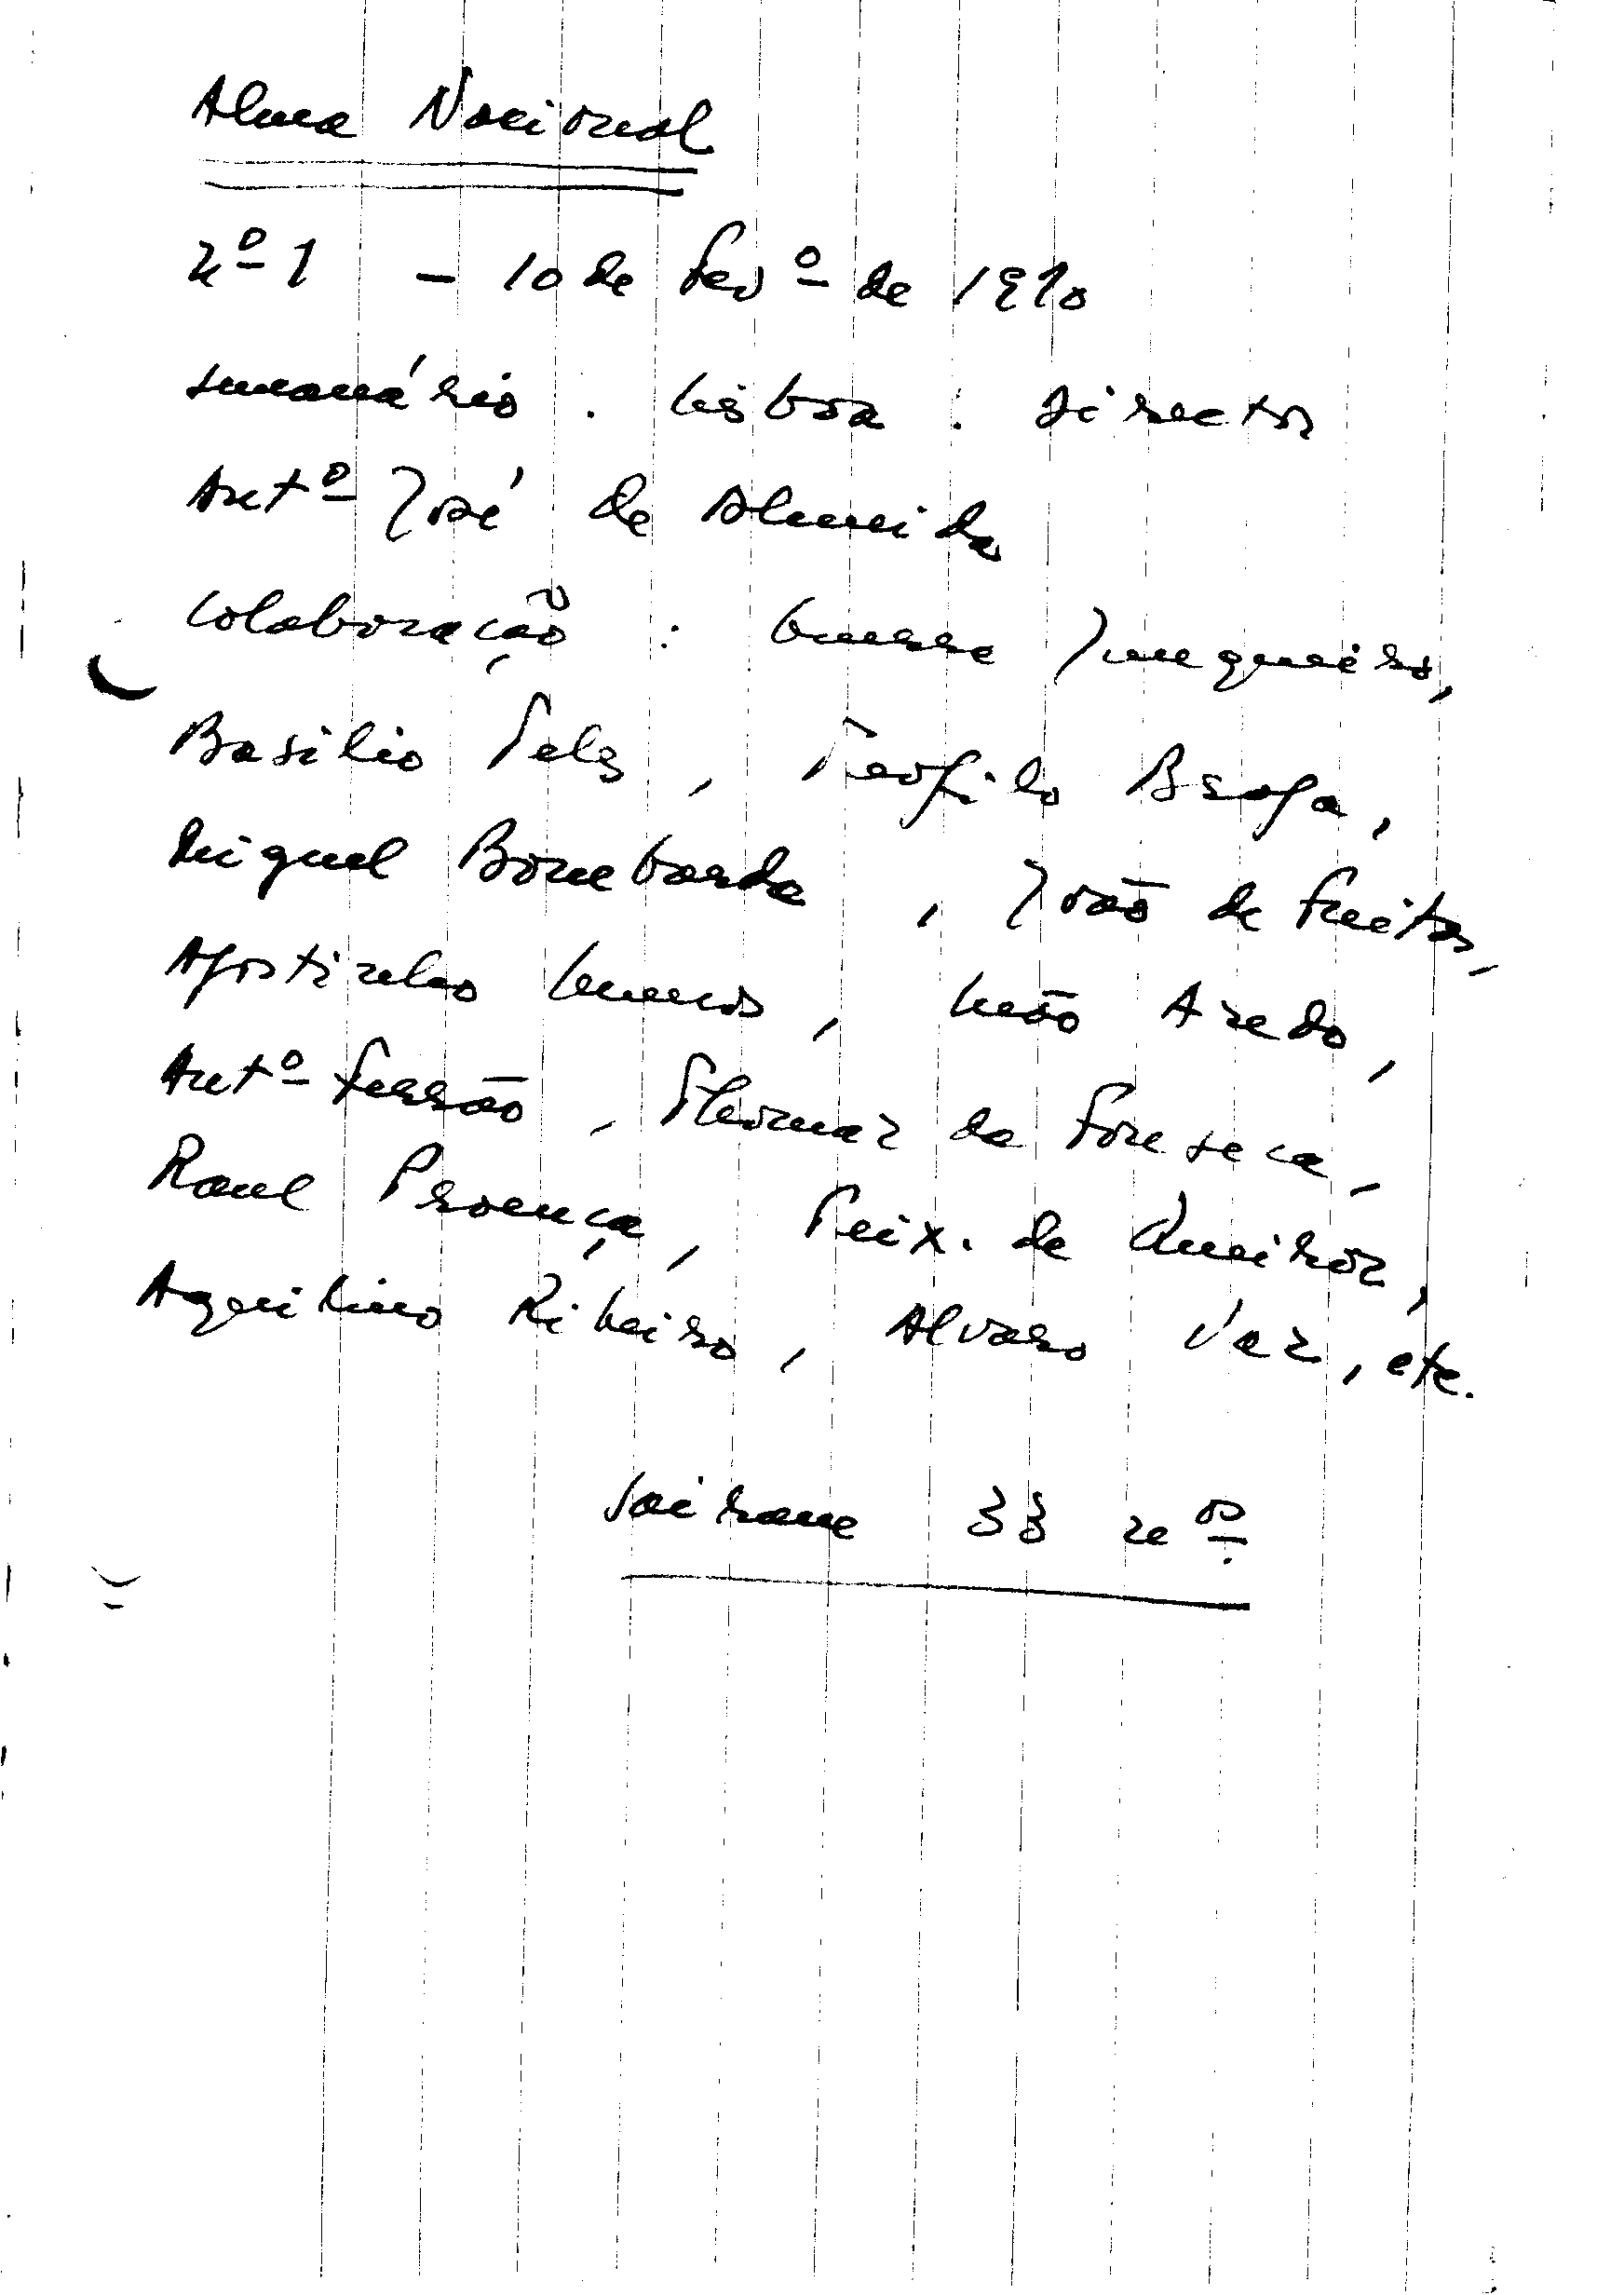 Alma Nacional
nº 1 - 10 de Fevº de 1910
semanário. Lisboa. Director
Antº José de Almeida
Colaboração: Guerra Junqueiro,
Basilio Teles, Teofilo Braga,
Miguel Bombarda, João de Freitas,
Agostinho Lemos, Meão Azedo,
Antº Ferrão, Thomaz da Fonseca,
Raul Proença, Teix. de Queiroz,
Aquilino Ribeiro, Alvaro Vaz, etc.
Sairam 33 nos.